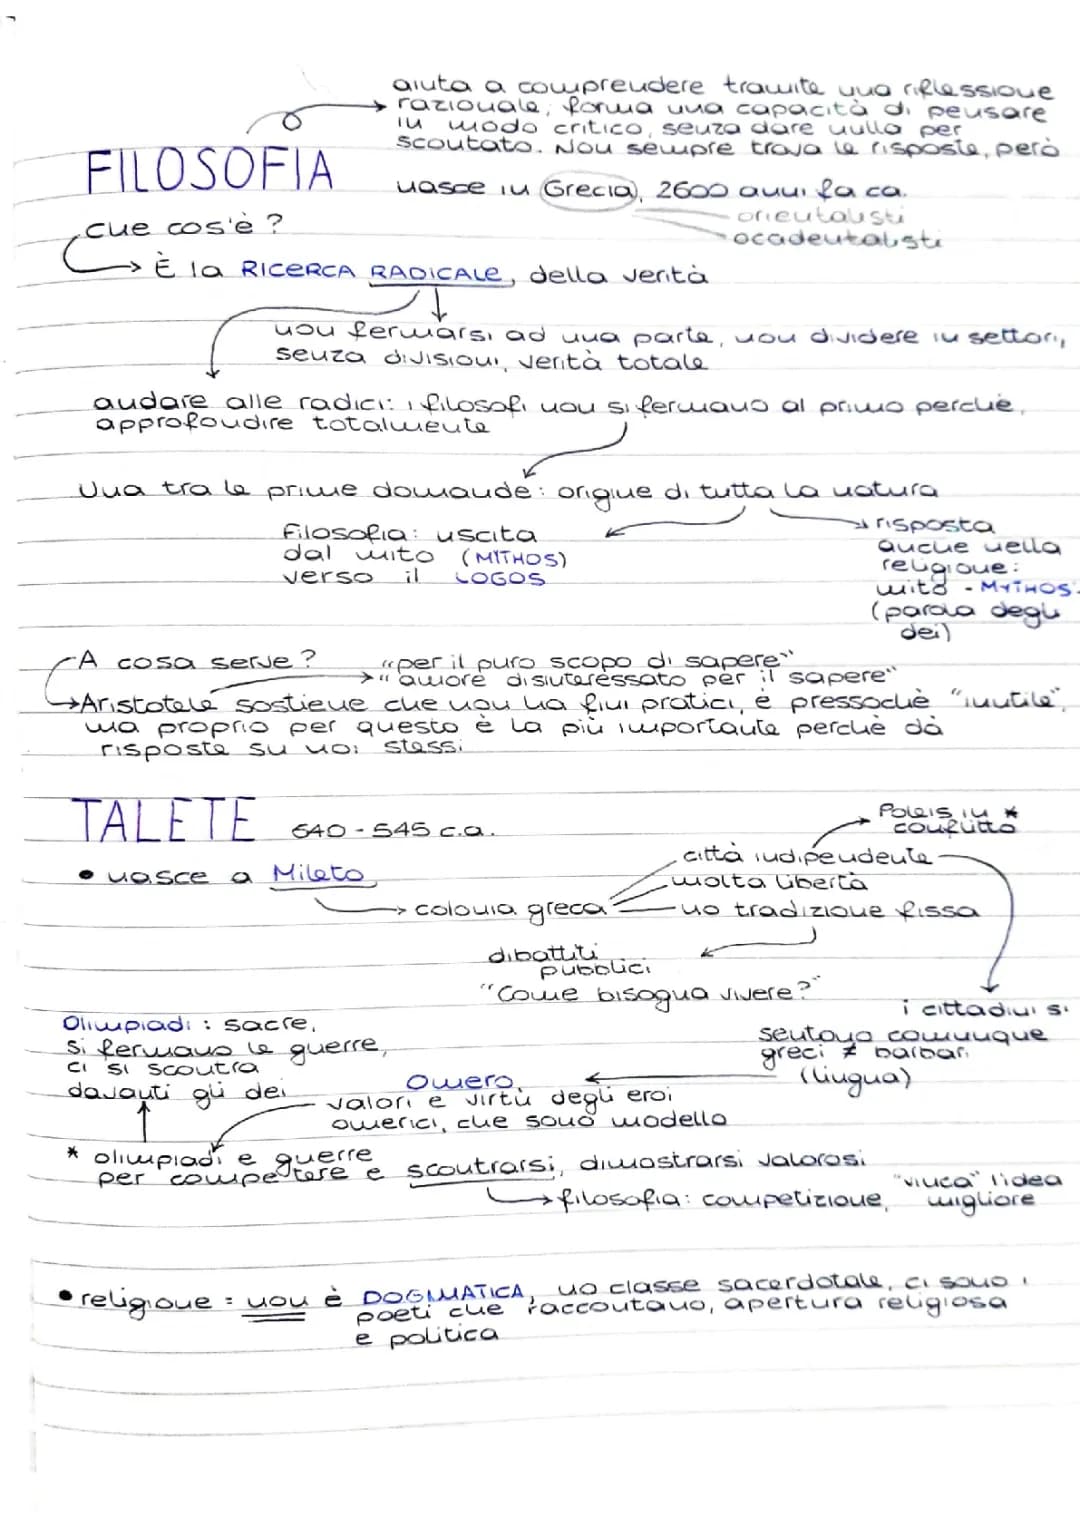 aiuta a comprendere tramite una riflessione
razionale; forma una capacità di pensare
in modo critico, senza dare nulla per
scontato. Non sempre trova le risposte, però
FILOSOFIA
nasce in Grecia, 2600 anni fa ca.
orientalisti
ocadentalisti
che cos'è?
È la RICERCA RADICALE, della verità
non fermarsi ad una parte, non dividere in settori,
senza divisioni, verità totale
andare alle radici: i filosofi non si fermano al primo perché,
approfondire totalmente
Una tra le prime domande: origine di tutta la natura
filosofia: uscita
dal mito (MYTHOS)
verso il LOGOS
risposta
anche nella
religione:
mito - MYTHOS
(parola degli
dei)
A cosa serve?
"per il puro scopo di sapere"
"amore disinteressato per il sapere"
Aristotele sostiene che non ha fini pratici, è pressoché "inutile",
ma proprio per questo è la più importante perché dà
risposte su noi stessi
TALETE 640 - 545 c.a.
Poleis in *
conflitto
• nasce a Mileto
città indipendente
molta libertà
colonia greca
no tradizione fissa
dibattiti
pubblici
"Come bisogna vivere?"
i cittadini si
sentono comunque
greci ≠ barbari
(lingua)
Olimpiadi: sacre,
si fermano le guerre,
ci si scontra
davanti gli dei
Omero,
valori e virtù degli eroi
omerici, che sono modello
* olimpiadi e guerre
per competere e scontrarsi, dimostrarsi valorosi
filosofia: competizione, "vinca" l'idea
migliore
• religione = non è DOGMATICA, no classe sacerdotale, ci sono i
poeti che raccontano, apertura religiosa
e politica